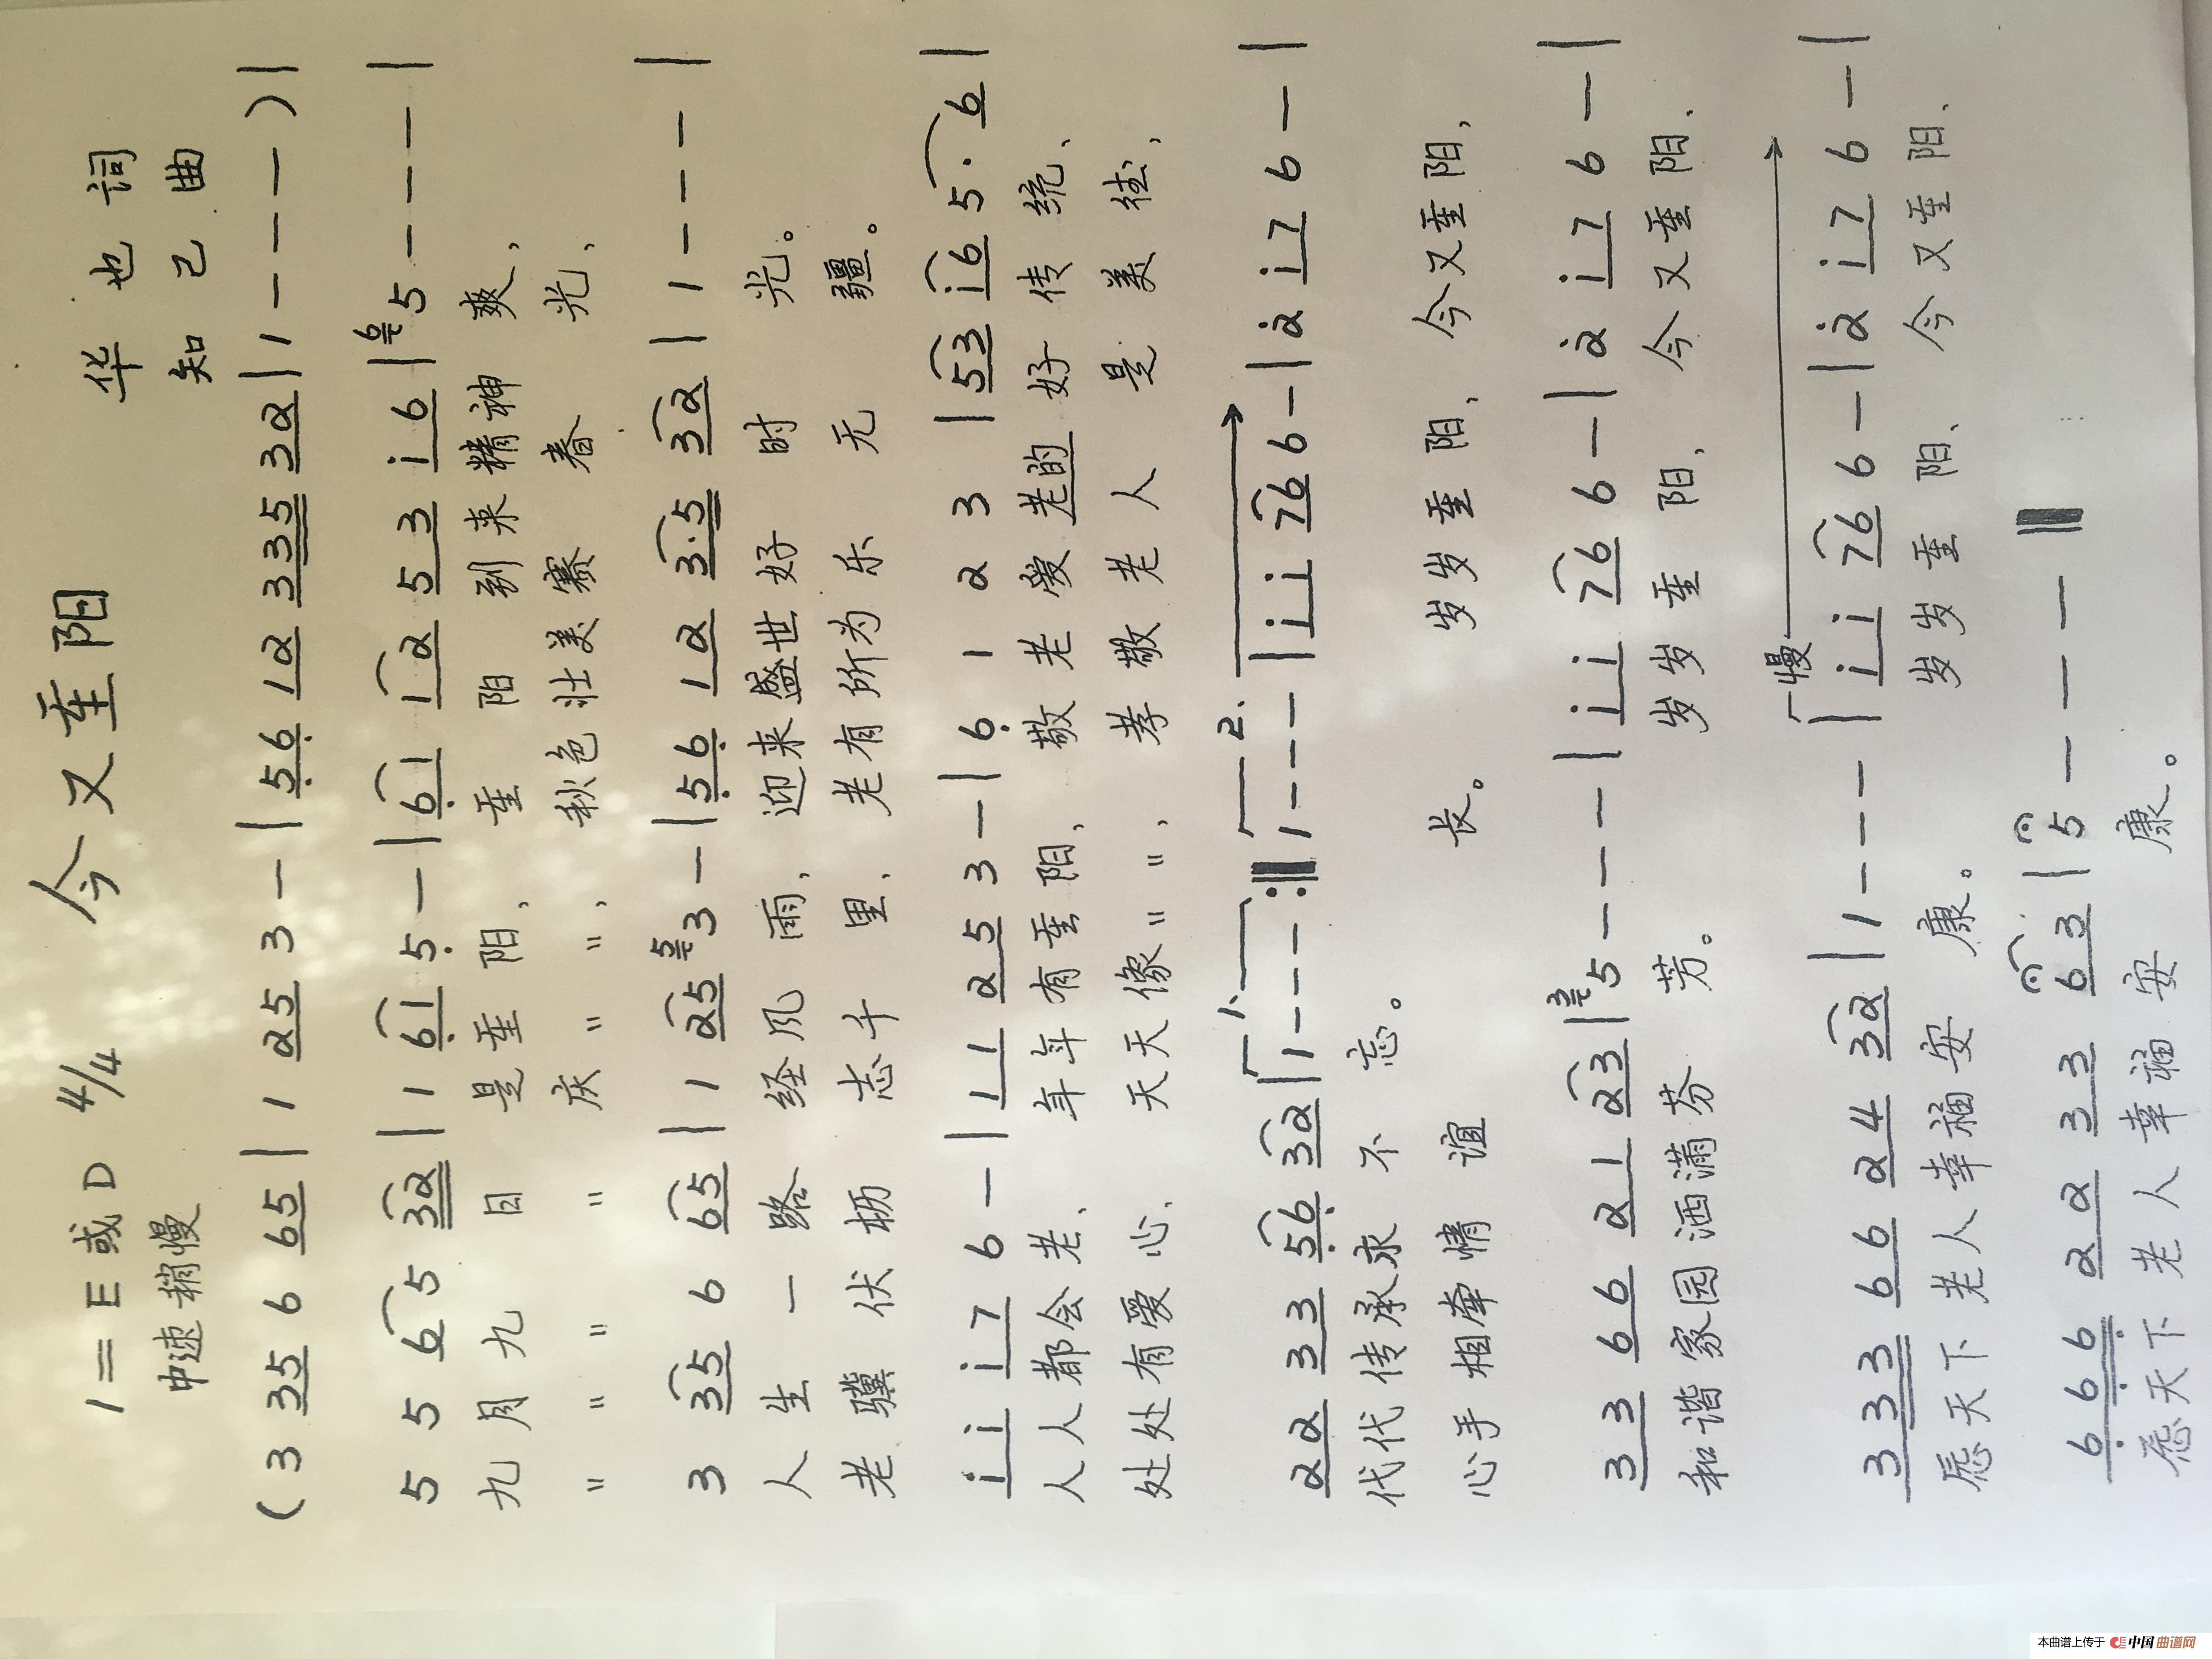 今又重阳
1=E或D 4/4 华也词
中速稍慢 知己曲
(3 35 6 65 | 1 25 3 - | 56 12 335 32 | 1 - - - ) |
5 5 65 32 | 1 61 5 - | 61 12 53 i6 | 6 5 - - - |
九月九日是重阳,重阳到来精神爽,
" " " " 庆 " " ",秋色壮美赛春光、
3 35 6 65 | 1 25 5 3 - | 56 12 3·5 32 | 1 - - - |
人生一路经风雨,迎来盛世好时光。
老骥伏枥志千里、老有所为乐无疆。
i i i 7 6 - | 1 1 2 5 3 - | 6 1 2 3 | 53 i6 5· 6 |
人人都会老、年年有重阳、敬老爱老的好传统、
处处有爱心、天天像 " ",孝敬老人是美德,
2 2 3 3 56 32 | 1. 1 - - - :| 2. 1 - - - | i i 76 6 - | 2 i 7 6 - |
代代传承永不忘。岁岁重阳,今又重阳,
心手相牵情谊长。
3 3 6 6 2 1 23 | 3 5 - - - | i i 76 6 - | 2 i 7 6 - |
和谐家园洒满芬芳。岁岁重阳,今又重阳、
慢
3 33 6 6 2 4 32 | 1 - - - | i i 76 6 - | 2 i 7 6 - |
愿天下老人幸福安康。岁岁重阳、今又重阳、
6 66 2 2 3 3 6 3 | 5 - - - ‖
愿天下老人幸福安康。
本曲谱上传于 中国曲谱网